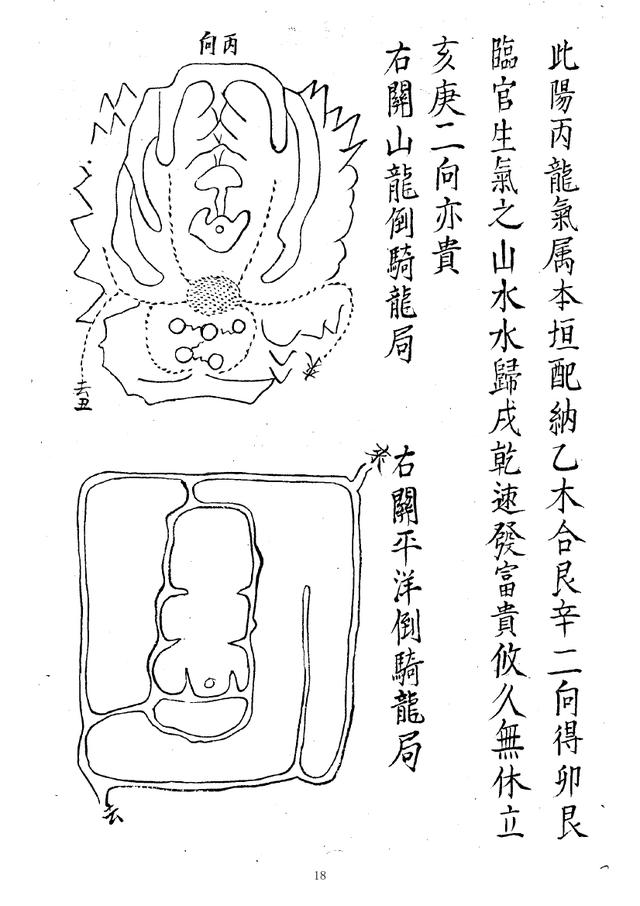 此陽丙龍氣属本垣配納乙木合艮辛二向得卯艮
臨官生氣之山水水歸戌乾速發富貴攸久無休立
亥庚二向亦貴
右關山龍倒騎龍局
向丙
去丑
右關平洋倒騎龍局
去
18